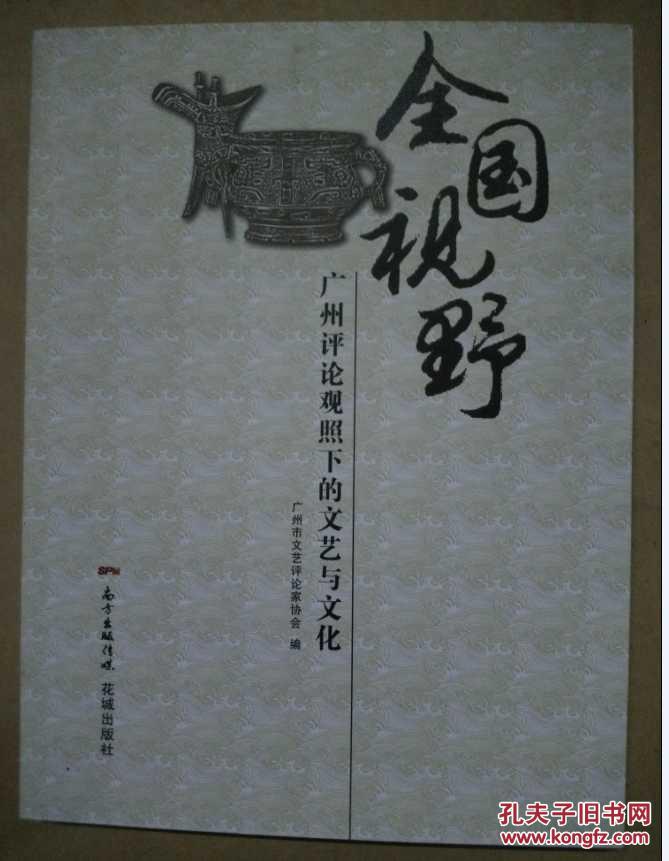 全国视野
广州评论观照下的文艺与文化
广州市文艺评论家协会 编
SPM
南方出版传媒
花城出版社
孔夫子旧书网
www.kongfz.com